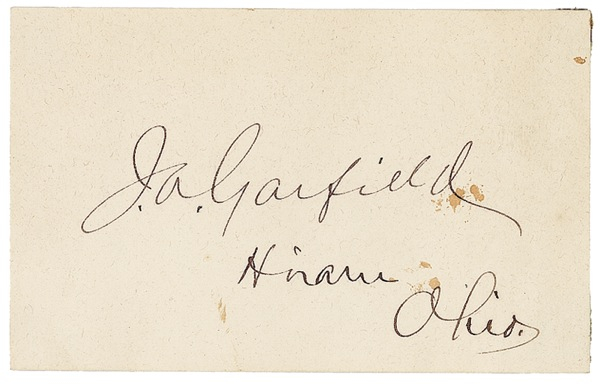 J.A. Garfield
Hiram
Ohio.